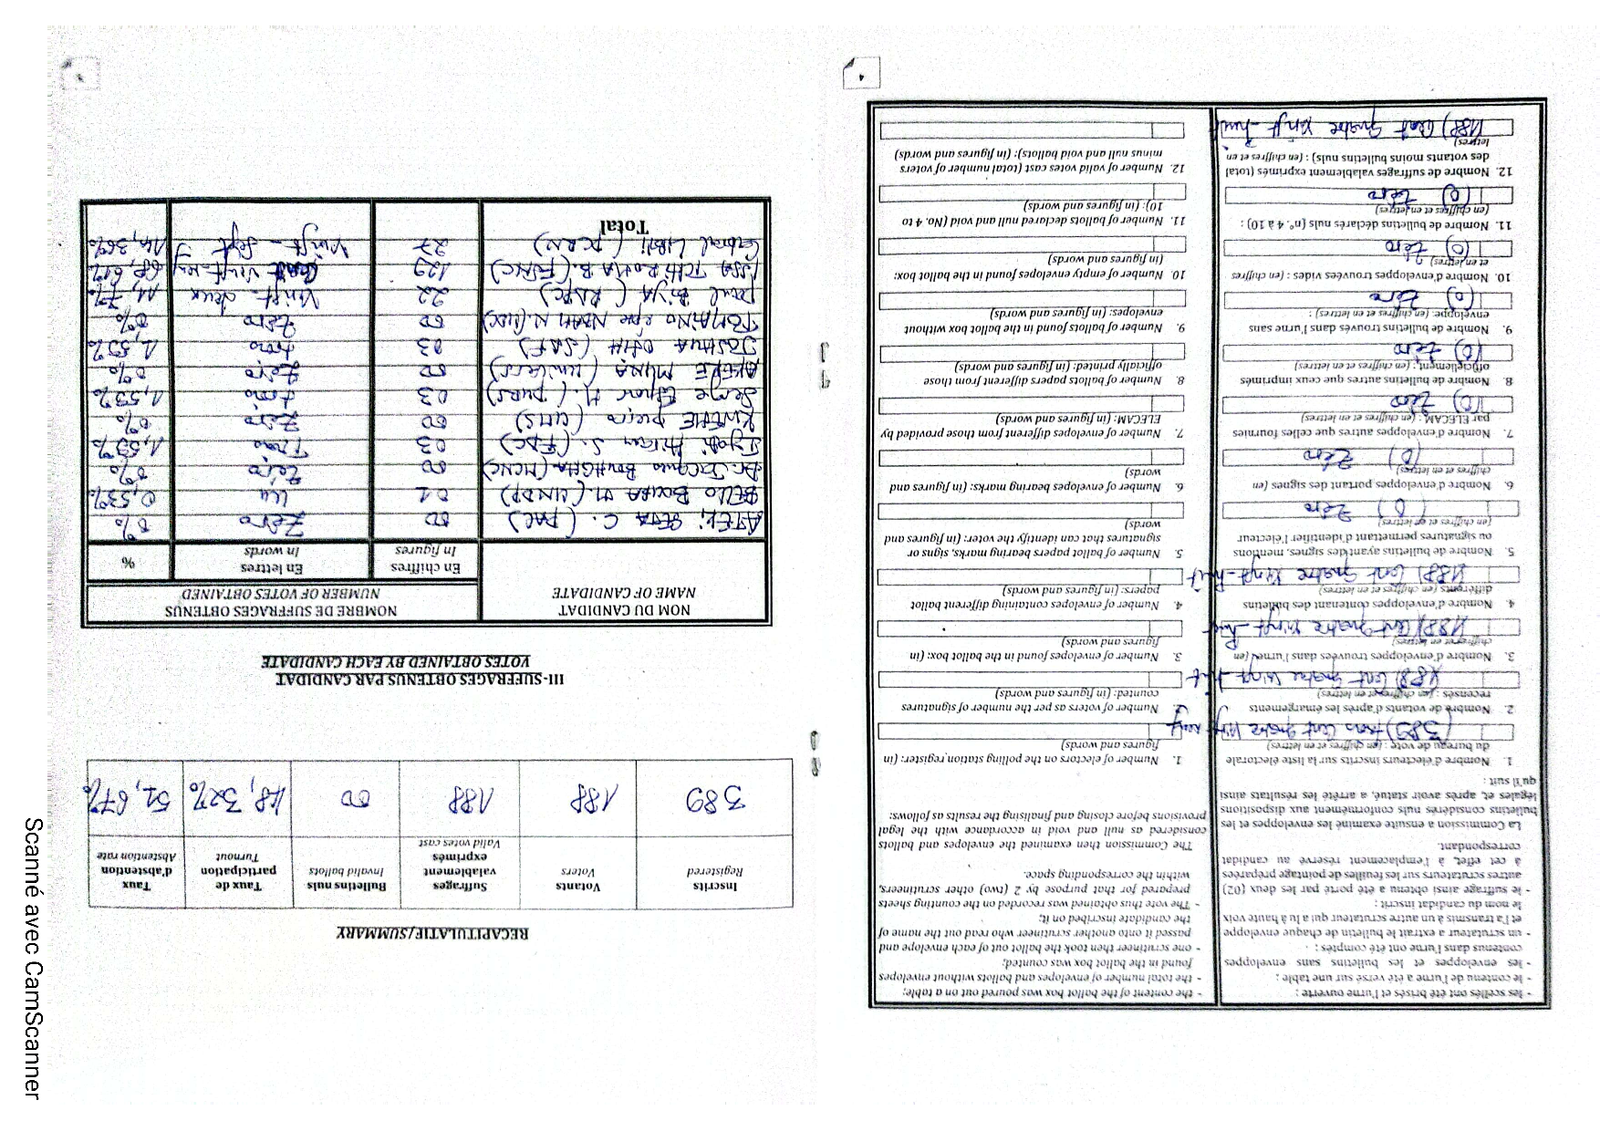 - les scellés ont été brisés et l'urne ouverte :
- le contenu de l'urne a été versé sur une table ;
- les enveloppes et les bulletins sans enveloppes contenus dans l'urne ont été comptés ;
- un scrutateur a extrait le bulletin de chaque enveloppe et l'a transmis à un autre scrutateur qui a lu à haute voix le nom du candidat inscrit ;
- le suffrage ainsi obtenu a été porté par les deux (02) autres scrutateurs sur les feuilles de pointage préparées à cet effet, à l'emplacement réservé au candidat correspondant.
La Commission a ensuite examiné les enveloppes et les bulletins considérés nuls conformément aux dispositions légales et, après avoir statué, a arrêté les résultats ainsi qu'il suit :
1. Nombre d'électeurs inscrits sur la liste électorale du bureau de vote : (en chiffres et en lettres)
(389) trois cent quatre vingt neuf
2. Nombre de votants d'après les émargements recensés : (en chiffres et en lettres)
188) Cent quatre vingt-huit
3. Nombre d'enveloppes trouvées dans l'urne : (en chiffres et en lettres)
188) Cent quatre vingt-huit
4. Nombre d'enveloppes contenant des bulletins différents : (en chiffres et en lettres)
188) Cent quatre vingt-huit
5. Nombre de bulletins ayant des signes, mentions ou signatures permettant d'identifier l'électeur (en chiffres et en lettres)
(0) Zéro
6. Nombre d'enveloppes portant des signes (en chiffres et en lettres)
(0) Zéro
7. Nombre d'enveloppes autres que celles fournies par ELECAM : (en chiffres et en lettres)
(0) Zéro
8. Nombre de bulletins autres que ceux imprimés officiellement : (en chiffres et en lettres)
(0) Zéro
9. Nombre de bulletins trouvés dans l'urne sans enveloppe: (en chiffres et en lettres) :
(0) Zéro
10. Nombre d'enveloppes trouvées vides : (en chiffres et en lettres)
(0) Zéro
11. Nombre de bulletins déclarés nuls (n°. 4 à 10) : (en chiffres et en lettres)
(0) Zéro
12. Nombre de suffrages valablement exprimés (total des votants moins bulletins nuls) : (en chiffres et en lettres)
188) Cent quatre vingt-huit
- the content of the ballot box was poured out on a table;
- the total number of envelopes and ballots without envelopes found in the ballot box was counted;
- one scrutineer then took the ballot out of each envelope and passed it onto another scrutineer who read out the name of the candidate inscribed on it;
- The vote thus obtained was recorded on the counting sheets prepared for that purpose by 2 (two) other scrutineers, within the corresponding space.
The Commission then examined the envelopes and ballots considered as null and void in accordance with the legal provisions before closing and finalising the results as follows:
1. Number of electors on the polling station register: (in figures and words)
2. Number of voters as per the number of signatures counted: (in figures and words)
3. Number of envelopes found in the ballot box: (in figures and words)
4. Number of envelopes containing different ballot papers: (in figures and words)
5. Number of ballot papers bearing marks, signs or signatures that can identify the voter: (in figures and words)
6. Number of envelopes bearing marks: (in figures and words)
7. Number of envelopes different from those provided by ELECAM: (in figures and words)
8. Number of ballots papers different from those officially printed: (in figures and words)
9. Number of ballots found in the ballot box without envelopes: (in figures and words)
10. Number of empty envelopes found in the ballot box: (in figures and words)
11. Number of ballots declared null and void (No. 4 to 10): (in figures and words)
12. Number of valid votes cast (total number of voters minus null and void ballots): (in figures and words)
RECAPITULATIF/SUMMARY
Inscrits Registered | Votants Voters | Suffrages valablement exprimés Valid votes cast | Bulletins nuls Invalid ballots | Taux de participation Turnout | Taux d'abstention Abstention rate
389 | 188 | 188 | 00 | 48,32% | 51,67%
III- SUFFRAGES OBTENUS PAR CANDIDAT
VOTES OBTAINED BY EACH CANDIDATE
NOM DU CANDIDAT NAME OF CANDIDATE | NOMBRE DE SUFFRAGES OBTENUS NUMBER OF VOTES OBTAINED
En chiffres In figures | En lettres In words | %
ATEKI SETA C. (PAL) 00 Zéro 0%
BELLO BOUBA M. (UNDP) 01 un 0,53%
Dr. Jacques BOUHGHA (MCNC) 00 Zéro 0%
Hiram S. (FDC) 03 Trois 1,59%
KWEMO Pierre (UMS) 00 Zéro 0%
Serge Espoir M. (PURS) 03 trois 1,59%
AKERE MUNA (Univers) 00 Zéro 0%
JOSHUA OSIH (SDF) 03 trois 1,59%
TOMAINO epse NDAM N. (PUDC) 00 Zéro 0%
Paul BIYA (RDPC) 22 Vingt-deux 11,7%
ISSA TCHIROMA B. (FSNC) 129 Cent vingt-neuf 68,61%
Cabral LIBII (PCRN) 27 Vingt-sept 14,36%
Total
Scanné avec CamScanner